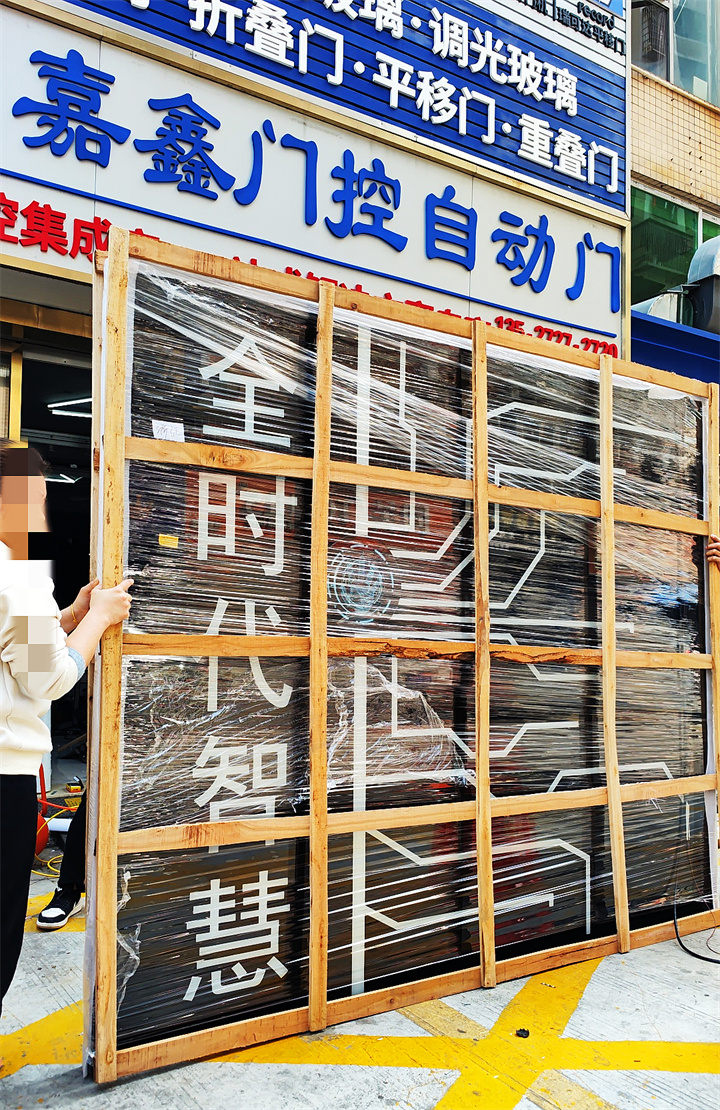 玻璃·调光玻璃
折叠门·平移门·重叠门
嘉鑫门控自动门
控集成
全时代智慧